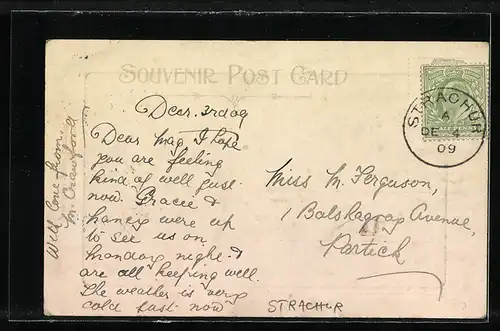 SOUVENIR POST CARD
Decr. 3rd 09
Dear Mag, I hope
you are feeling
kind of well just
now. Gracie &
Nancy were up
to see us on
Monday night. &
are all keeping well.
The weather is very
cold just now
Well love from
M. Crawford
STRACHUR
A
DE
09
HALF PENNY
Miss M. Ferguson,
1 Balshagray Avenue,
Partick
STRACHUR